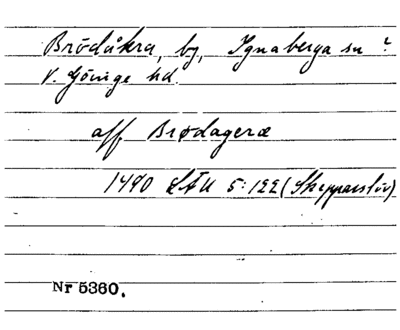 Brödåkra, by, Ignaberga sn ?
V. Göinge hd.
aff Brødageræ
1490 LÄU 5:122 (Skepparslöv)
Nr 5360.